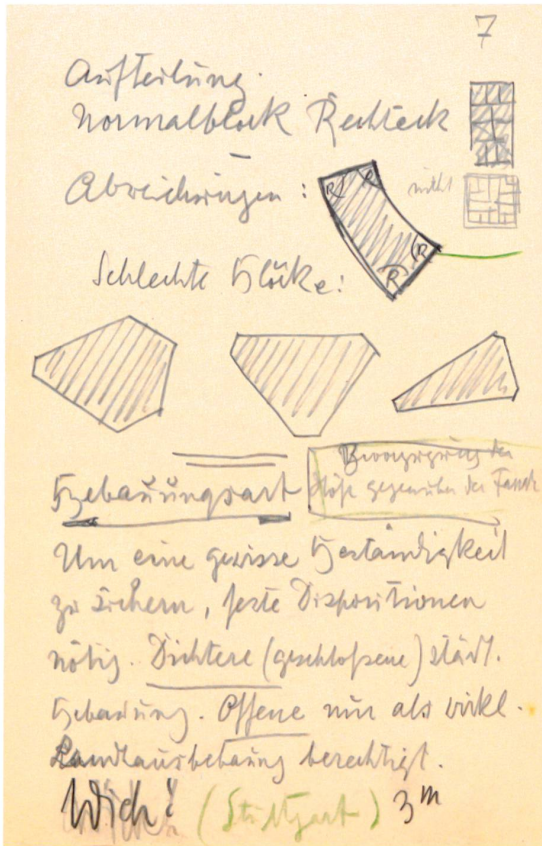 7
Aufteilung.
Normalblock Rechteck
Abweichungen:
nicht
R R
R
R
Schlechte Blöcke:
Bebauungsart
Bevorzugung der
Höfe gegenüber der
Um eine gewisse Beständigkeit
zu sichern, feste Dispositionen
nötig. Dichtere (geschloßene) städt.
Bebauung. Offene nur als wirkl.
Landhausbebauung berechtigt.
Wich! (Stuttgart) 3m